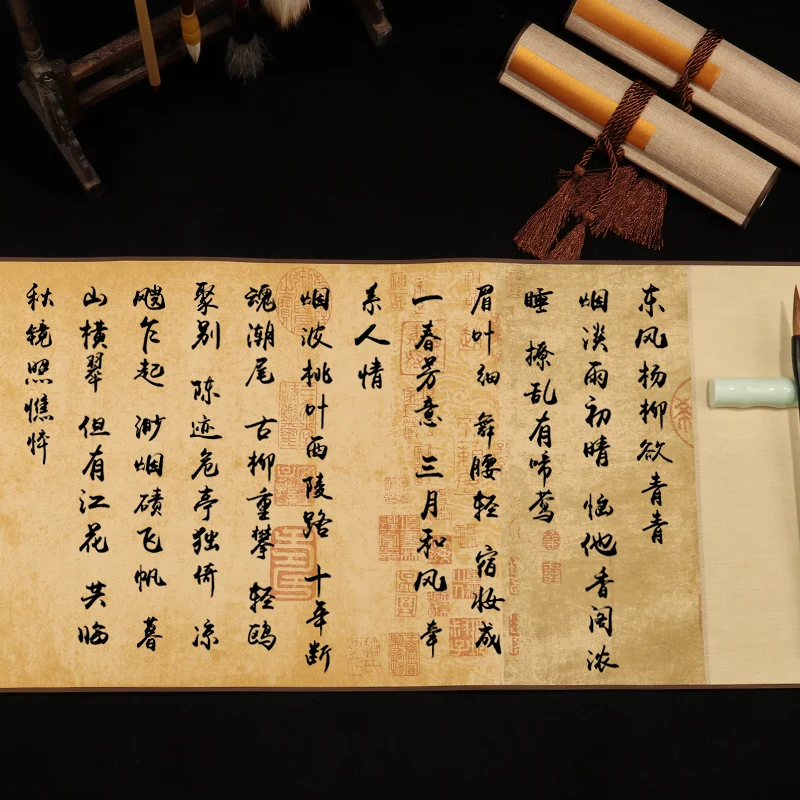 东风杨柳欲青青
烟淡雨初晴 恼他香阁浓
睡 撩乱有啼莺
眉叶细 舞腰轻 宿妆成
一春芳意 三月和风 牵
系人情
烟波桃叶西陵路 十年断
魂潮尾 古柳重攀 轻鸥
聚别 陈迹危亭独倚 凉
飔乍起 渺烟碛飞帆 暮
山横翠 但有江花 共临
秋镜照憔悴